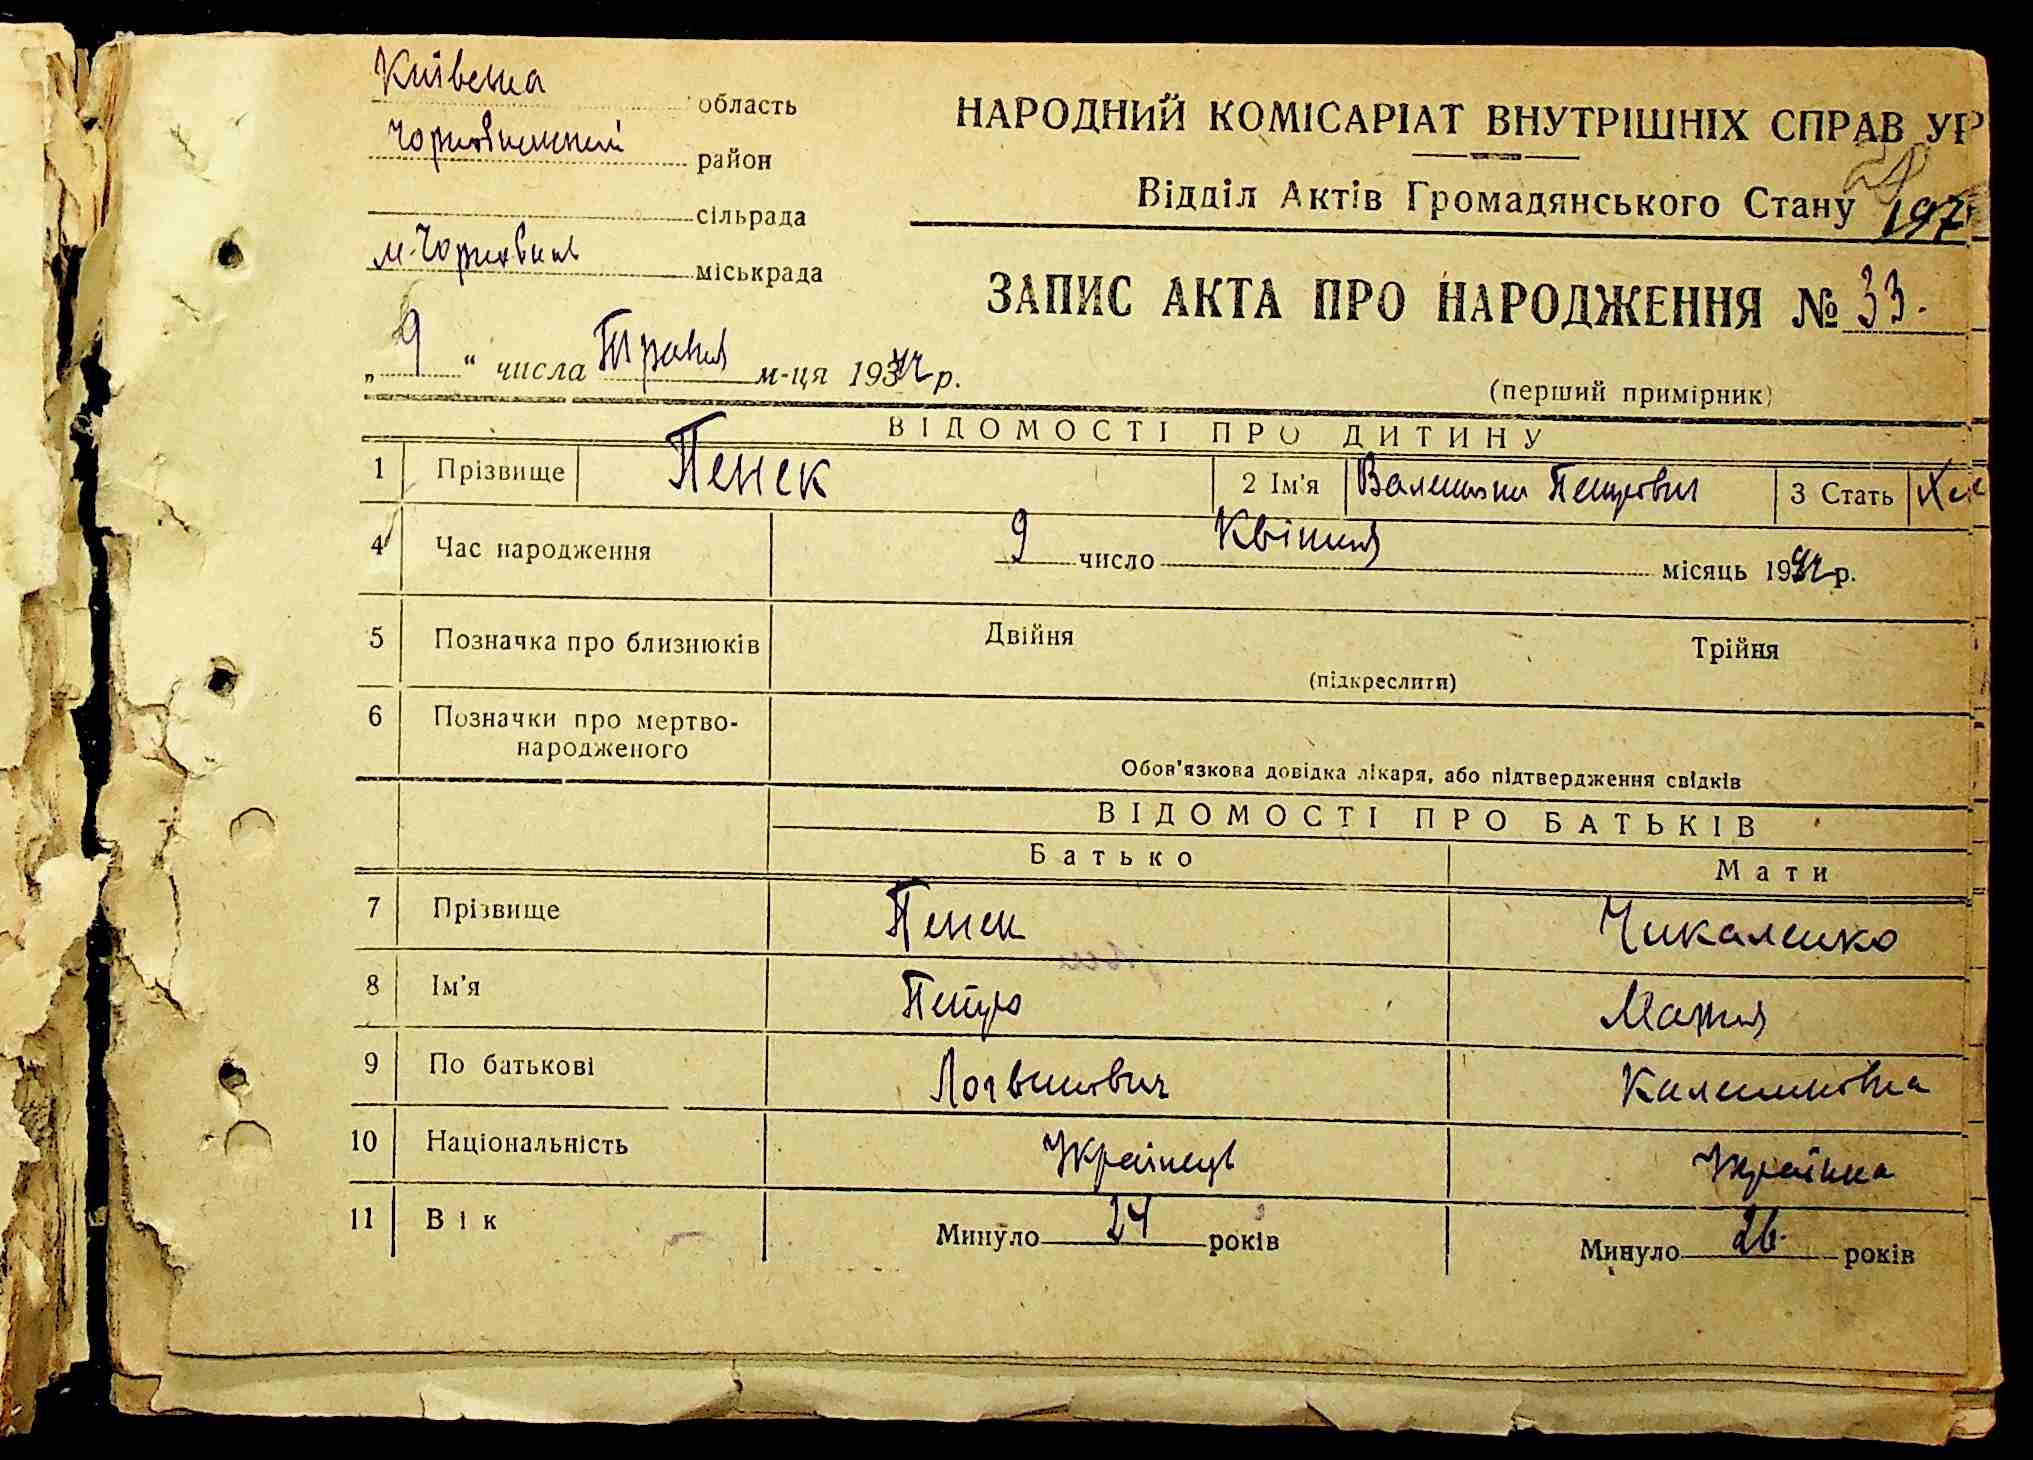 Київська область
Чорнобильський район
сільрада
м. Чорнобиль міськрада
НАРОДНИЙ КОМІСАРІАТ ВНУТРІШНІХ СПРАВ УР
Відділ Актів Громадянського Стану
197
ЗАПИС АКТА ПРО НАРОДЖЕННЯ № 33.
„ 9 “ числа Травня м-ця 1942 р.
(перший примірник)
ВІДОМОСТІ ПРО ДИТИНУ
1 Прізвище Пенек 2 Ім'я Валентин Петрович 3 Стать
4 Час народження 9 число Квітня місяць 1942 р.
5 Позначка про близнюків Двійня Трійня
(підкреслити)
6 Позначки про мертво-
народженого
Обов'язкова довідка лікаря, або підтвердження свідків
ВІДОМОСТІ ПРО БАТЬКІВ
Батько Мати
7 Прізвище Пенек Чикаленко
8 Ім'я Петро Мария
9 По батькові Логвинович
10 Національність Українець Українка
11 Вік Минуло 24 років Минуло 26 років